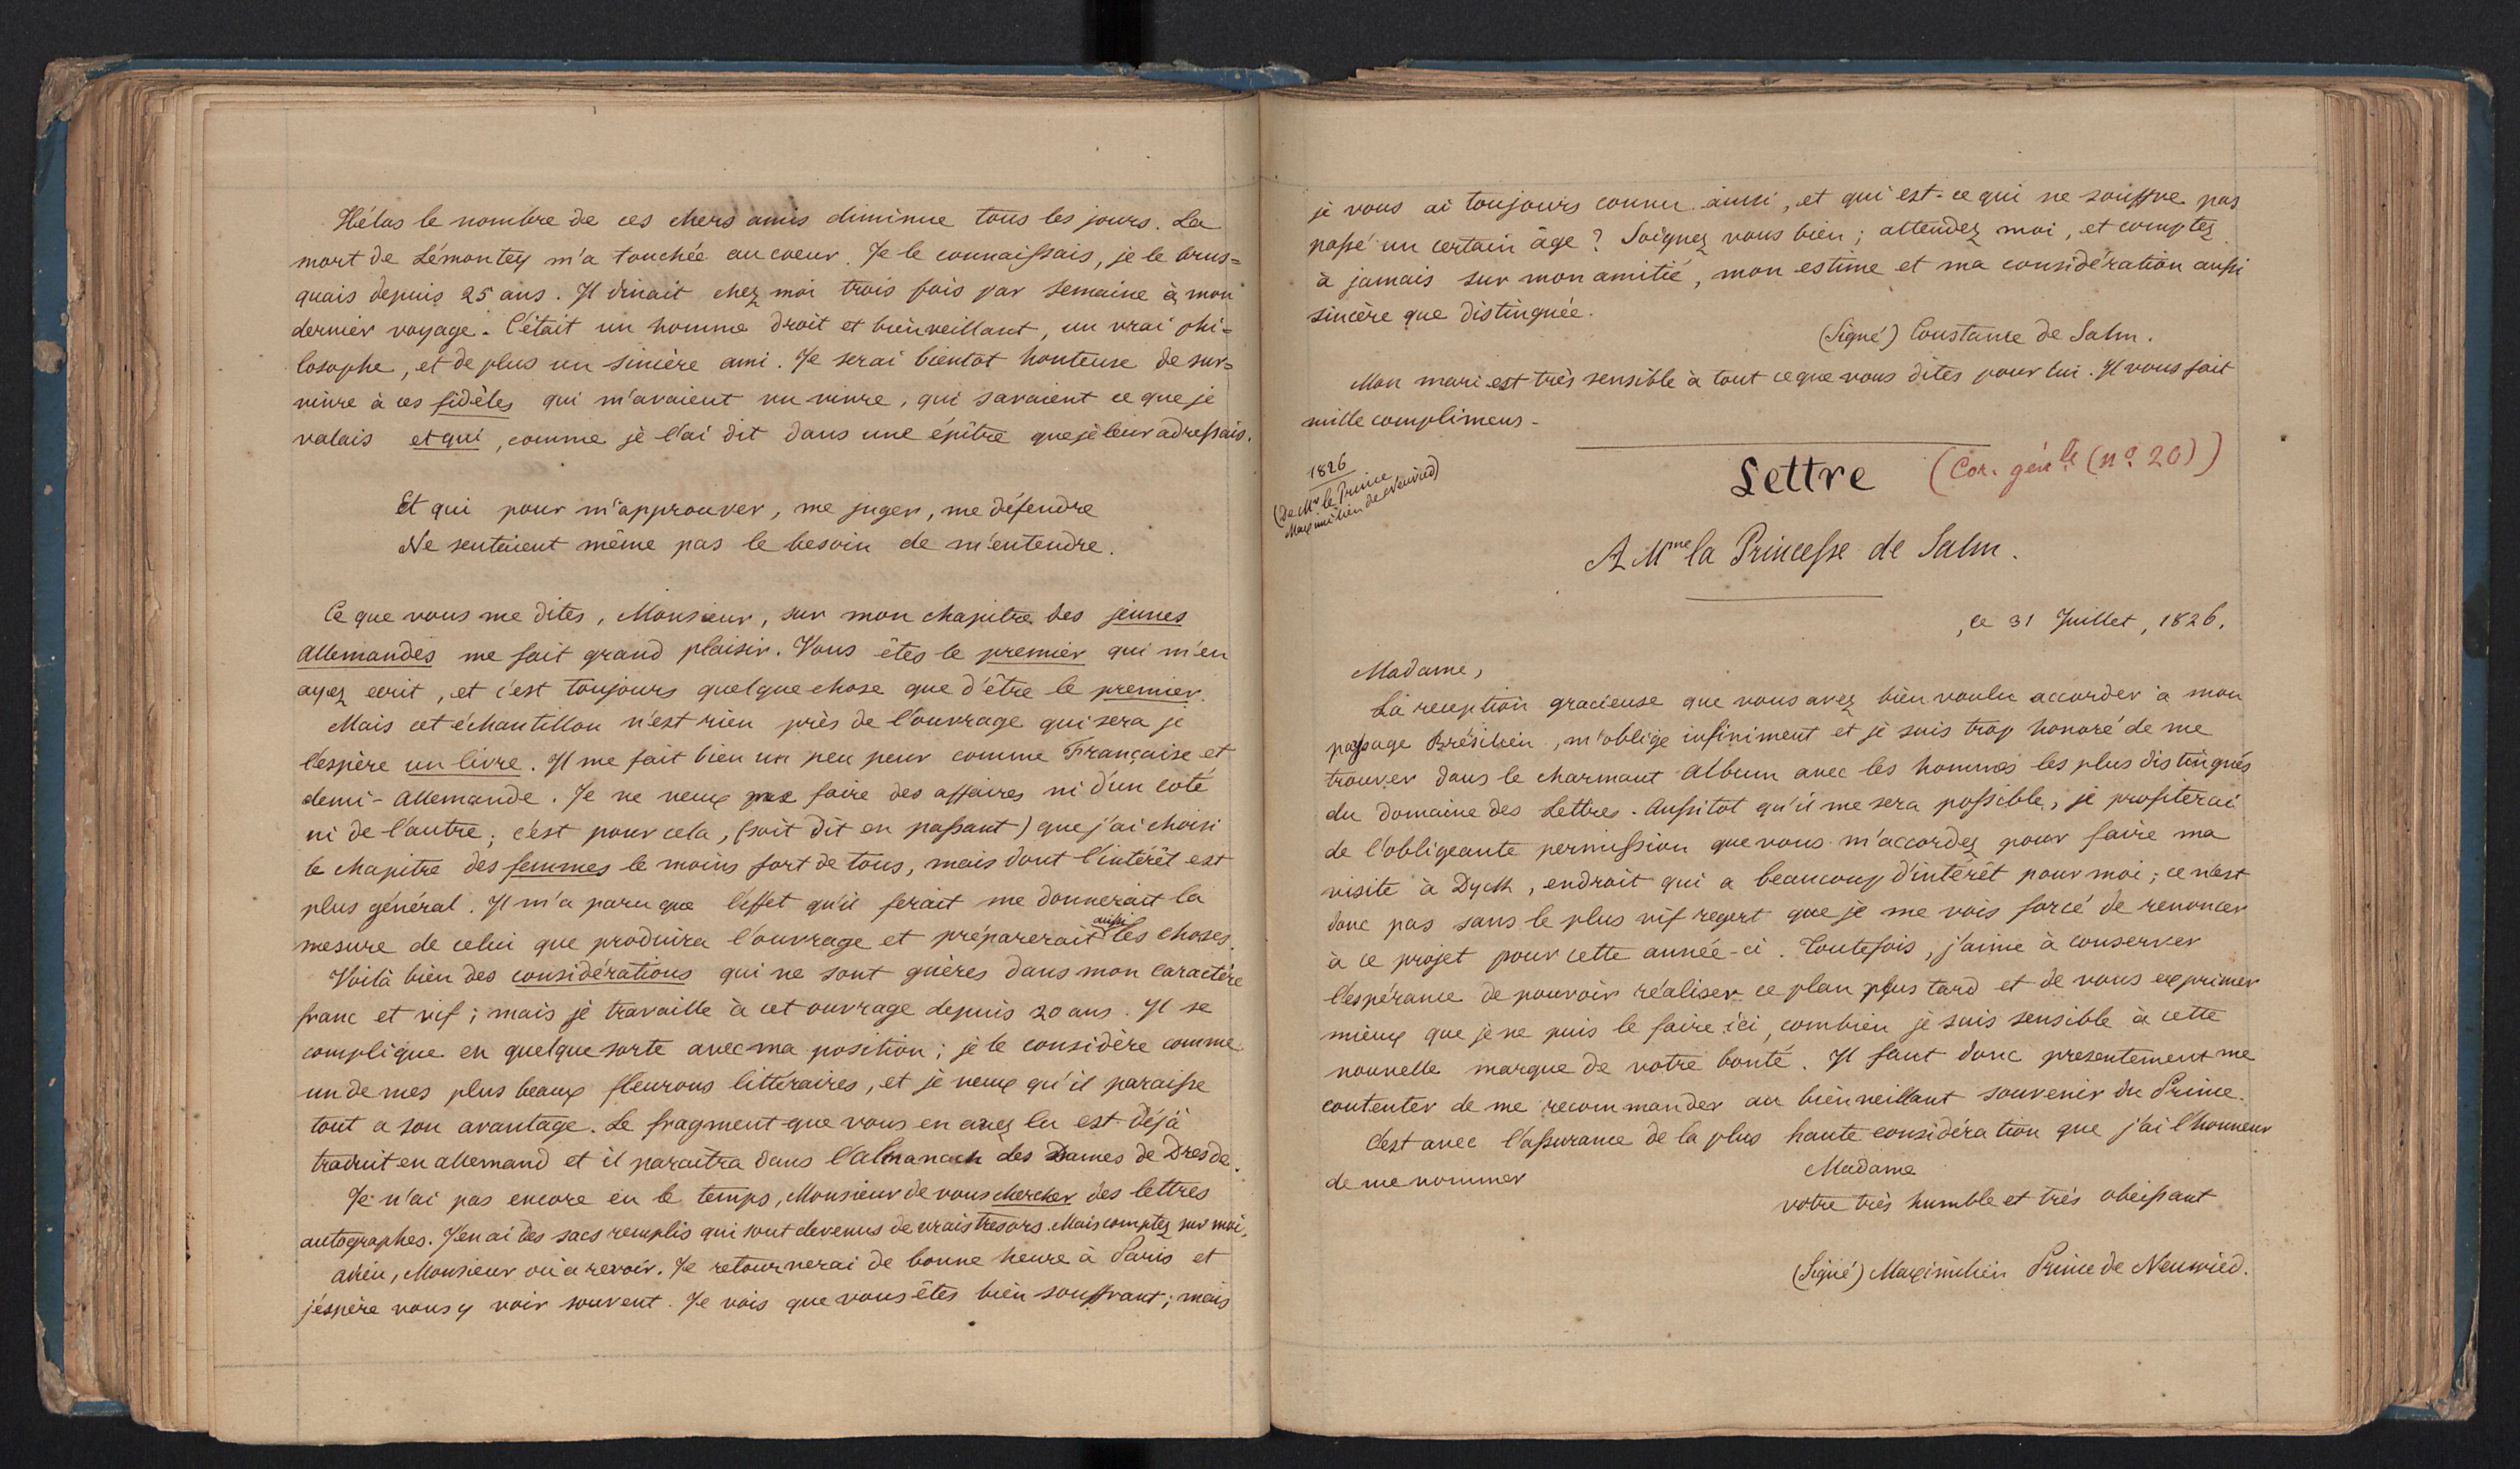 Hélas le nombre de ces chers amis diminue tous les jours. La
mort de Lémontey m'a touchée au coeur. Je le connaissais, je le brus=
quais depuis 25 ans. Il dinait chez moi trois fois par semaine à mon
dernier voyage. C'était un homme droit et bienveillant, un vrai phi=
losophe, et de plus un sincère ami. Je serai bientot honteuse de sur=
vivre à ces fidèles qui m'avaient vu vivre, qui savaient ce que je
valais et qui, comme je l'ai dit dans une épître que je leur adressais.
Et qui pour m'approuver, me juger, me défendre
Ne sentaient même pas le besoin de m'entendre.
Ce que vous me dites, Monsieur, sur mon chapitre des jeunes
allemandes me fait grand plaisir. Vous êtes le premier qui m'en
ayez ecrit, et c'est toujours quelque chose que d'être le premier.
Mais cet échantillon n'est rien près de l'ouvrage qui sera je
l'espère un livre. Il me fait bien un peu peur comme Française et
demi-allemande. Je ne veux pas faire des affaires ni d'un coté
ni de l'autre; c'est pour cela, (soit dit en passant) que j'ai choisi
le chapitre des femmes le moins fort de tous, mais dont l'intérêt est
plus général. Il m'a paru que l'effet qu'il ferait me donnerait la
mesure de celui que produira l'ouvrage et préparerait aussi les choses.
Voilà bien des considérations qui ne sont guères dans mon caractère
franc et vif; mais je travaille à cet ouvrage depuis 20 ans. Il se
complique en quelque sorte avec ma position; je le considère comme
un de mes plus beaux fleurons littéraires, et je veux qu'il paraisse
tout a son avantage. Le fragment que vous en avez lu est déjà
traduit en allemand et il paraitra dans l'almanach des Dames de Dresde.
Je n'ai pas encore eu le temps, Monsieur de vous chercher des lettres
autographes. J'en ai des sacs remplis qui sont devenus de vrais tresors. Mais comptez sur moi,
adieu, Monsieur ou à revoir. Je retournerai de bonne heure à Paris et
j'espère vous y voir souvent. Je vois que vous êtes bien souffrant; mais
je vous ai toujours connu ainsi, et qui est-ce qui ne souffre pas
passé un certain âge? Soignez vous bien; attendez moi, et comptez
à jamais sur mon amitié, mon estime et ma considération aussi
sincère que distinguée.
(Signé) Constance de Salm.
Mon mari est très sensible à tout ce que vous dites pour lui. Il vous fait
mille complimens-
1826
(De Mr le Prince
Maximilien de Neuwied)
Lettre (Cor. génle (no. 20))
A Mme la Princesse de Salm.
, le 31 Juillet, 1826.
Madame,
La reception gracieuse que vous avez bien voulu accorder à mon
passage Brésilien, m'oblige infiniment et je suis trop honoré de me
trouver dans le charmant album avec les hommes les plus distingués
du domaine des Lettres. Aussitot qu'il me sera possible, je profiterai
de l'obligeante permission que vous m'accordez pour faire ma
visite à Dyck, endroit qui a beaucoup d'intérêt pour moi; ce n'est
donc pas sans le plus vif regert que je me vois forcé de renoncer
à ce projet pour cette année-ci. Toutefois, j'aime à conserver
l'espérance de pouvoir réaliser ce plan plus tard et de vous exprimer
mieux que je ne puis le faire ici, combien je suis sensible à cette
nouvelle marque de votre bonté. Il faut donc presentement me
contenter de me recommander au bienveillant souvenir du Prince.
C'est avec l'assurance de la plus haute considération que j'ai l'honneur
de me nommer
Madame
votre très humble et très obeissant
(Signé) Maximilien Prince de Neuwied.